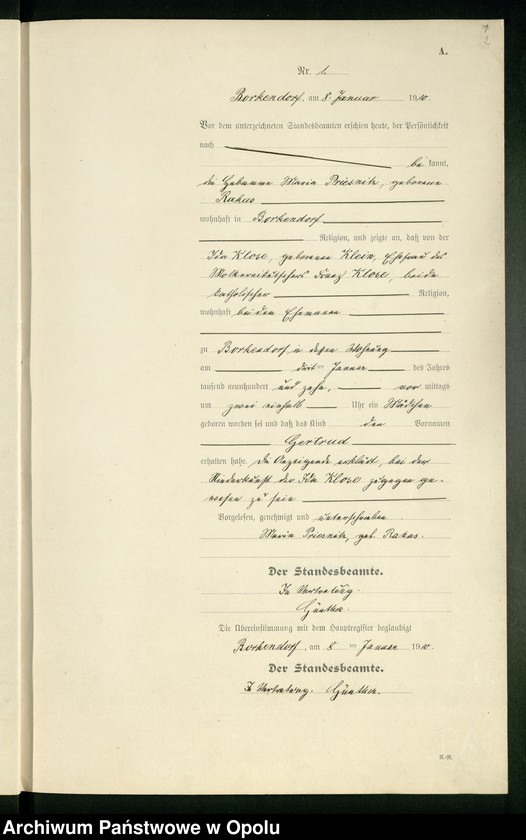 1
2
A.
Nr. 1.
Borkendorf, am 8. Januar 1910.
Vor dem unterzeichneten Standesbeamten erschien heute, der Persönlichkeit
nach
be kannt,
die Hebamme Maria Priesnitz, geborene
Rakus
wohnhaft in Borkendorf
Religion, und zeigte an, daß von der
Ida Klose, geborenen Klein, Ehefrau des
Molkereikutschers Franz Klose, beide
katholischer Religion,
wohnhaft bei dem Ehemanne
zu Borkendorf in dessen Wohnung
am drit ten Januar des Jahres
tausend neunhundert und zehn, vor mittags
um zwei einhalb Uhr ein Mädchen
geboren worden sei und daß das Kind den Vornamen
Gertrud
erhalten habe. Die Anzeigende erklärt, bei der
Niederkunft der Ida Klose zugegen ge-
wesen zu sein
Vorgelesen, genehmigt und unterschrieben
Maria Priesnitz, geb. Rakus.
Der Standesbeamte.
In Vertretung.
Günther.
Die Übereinstimmung mit dem Hauptregister beglaubigt
Borkendorf, am 8 ten Januar 1910.
Der Standesbeamte.
In Vertretung. Günther.
Archiwum Państwowe w Opolu